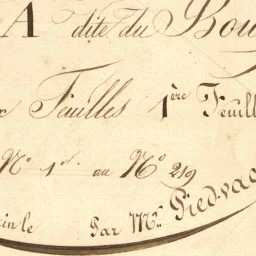 A dite du Bou
Feuilles 1ère Feuill
N° 1er au N° 219
Par Mr. Piedvac